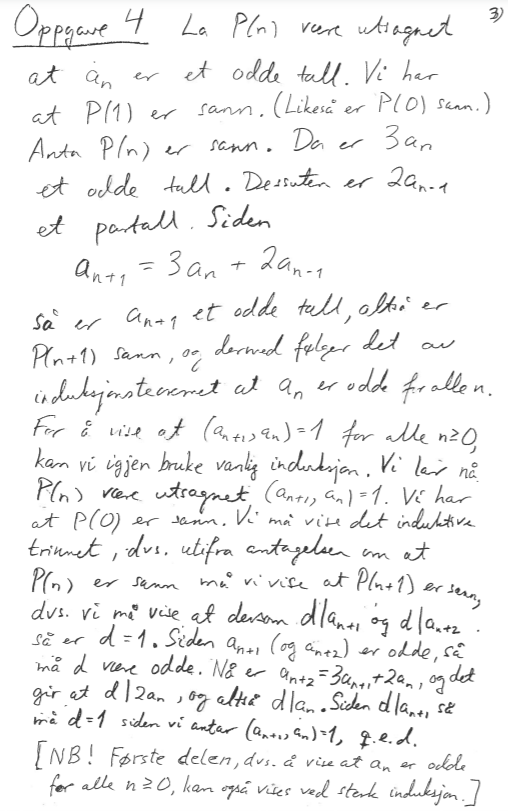 Oppgave 4 La P(n) være utsagnet 3)
at aₙ er et odde tall. Vi har
at P(1) er sann. (Likeså er P(0) sann.)
Anta P(n) er sann. Da er 3aₙ
et odde tall. Dessuten er 2aₙ₋₁
et partall. Siden
aₙ₊₁ = 3aₙ + 2aₙ₋₁
så er aₙ₊₁ et odde tall, altså er
P(n+1) sann, og dermed følger det av
induksjonsteoremet at aₙ er odde for alle n.
For å vise at (aₙ₊₁, aₙ) = 1 for alle n≥0,
kan vi igjen bruke vanlig induksjon. Vi lar nå
P(n) være utsagnet (aₙ₊₁, aₙ) = 1. Vi har
at P(0) er sann. Vi må vise det induktive
trinnet, dvs. utifra antagelsen om at
P(n) er sann må vi vise at P(n+1) er sann,
dvs. vi må vise at dersom d|aₙ₊₁ og d|aₙ₊₂
så er d = 1. Siden aₙ₊₁ (og aₙ₊₂) er odde, så
må d være odde. Nå er aₙ₊₂ = 3aₙ₊₁ + 2aₙ, og det
gir at d|2aₙ, og altså d|aₙ. Siden d|aₙ₊₁ så
må d=1 siden vi antar (aₙ₊₁, aₙ)=1, q.e.d.
[NB! Første delen, dvs. å vise at aₙ er odde
for alle n ≥ 0, kan også vises ved sterk induksjon.]